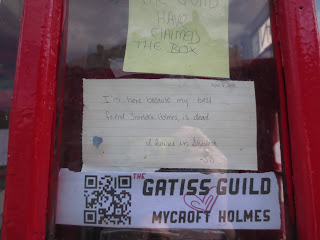 THE GUILD
HAVE
CLAIMED
THE BOX
I'm here because my best
friend Sherlock Holmes, is dead
I believe in Sherlock
THE GATISS GUILD
MYCROFT HOLMES